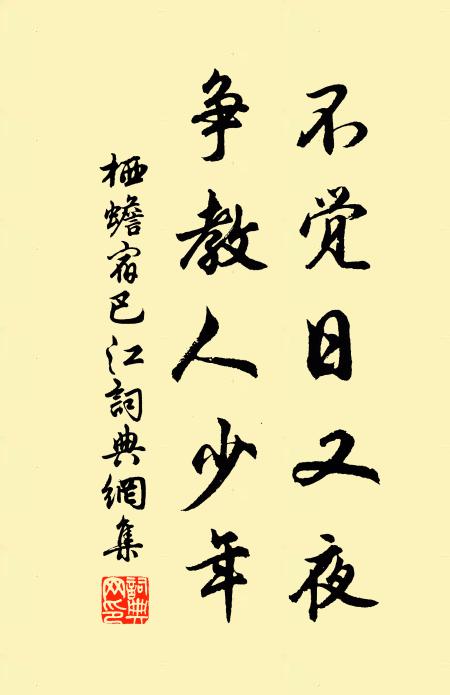 不觉日又夜
争教人少年
栖蟾宿巴江詞典網集
詞典网印